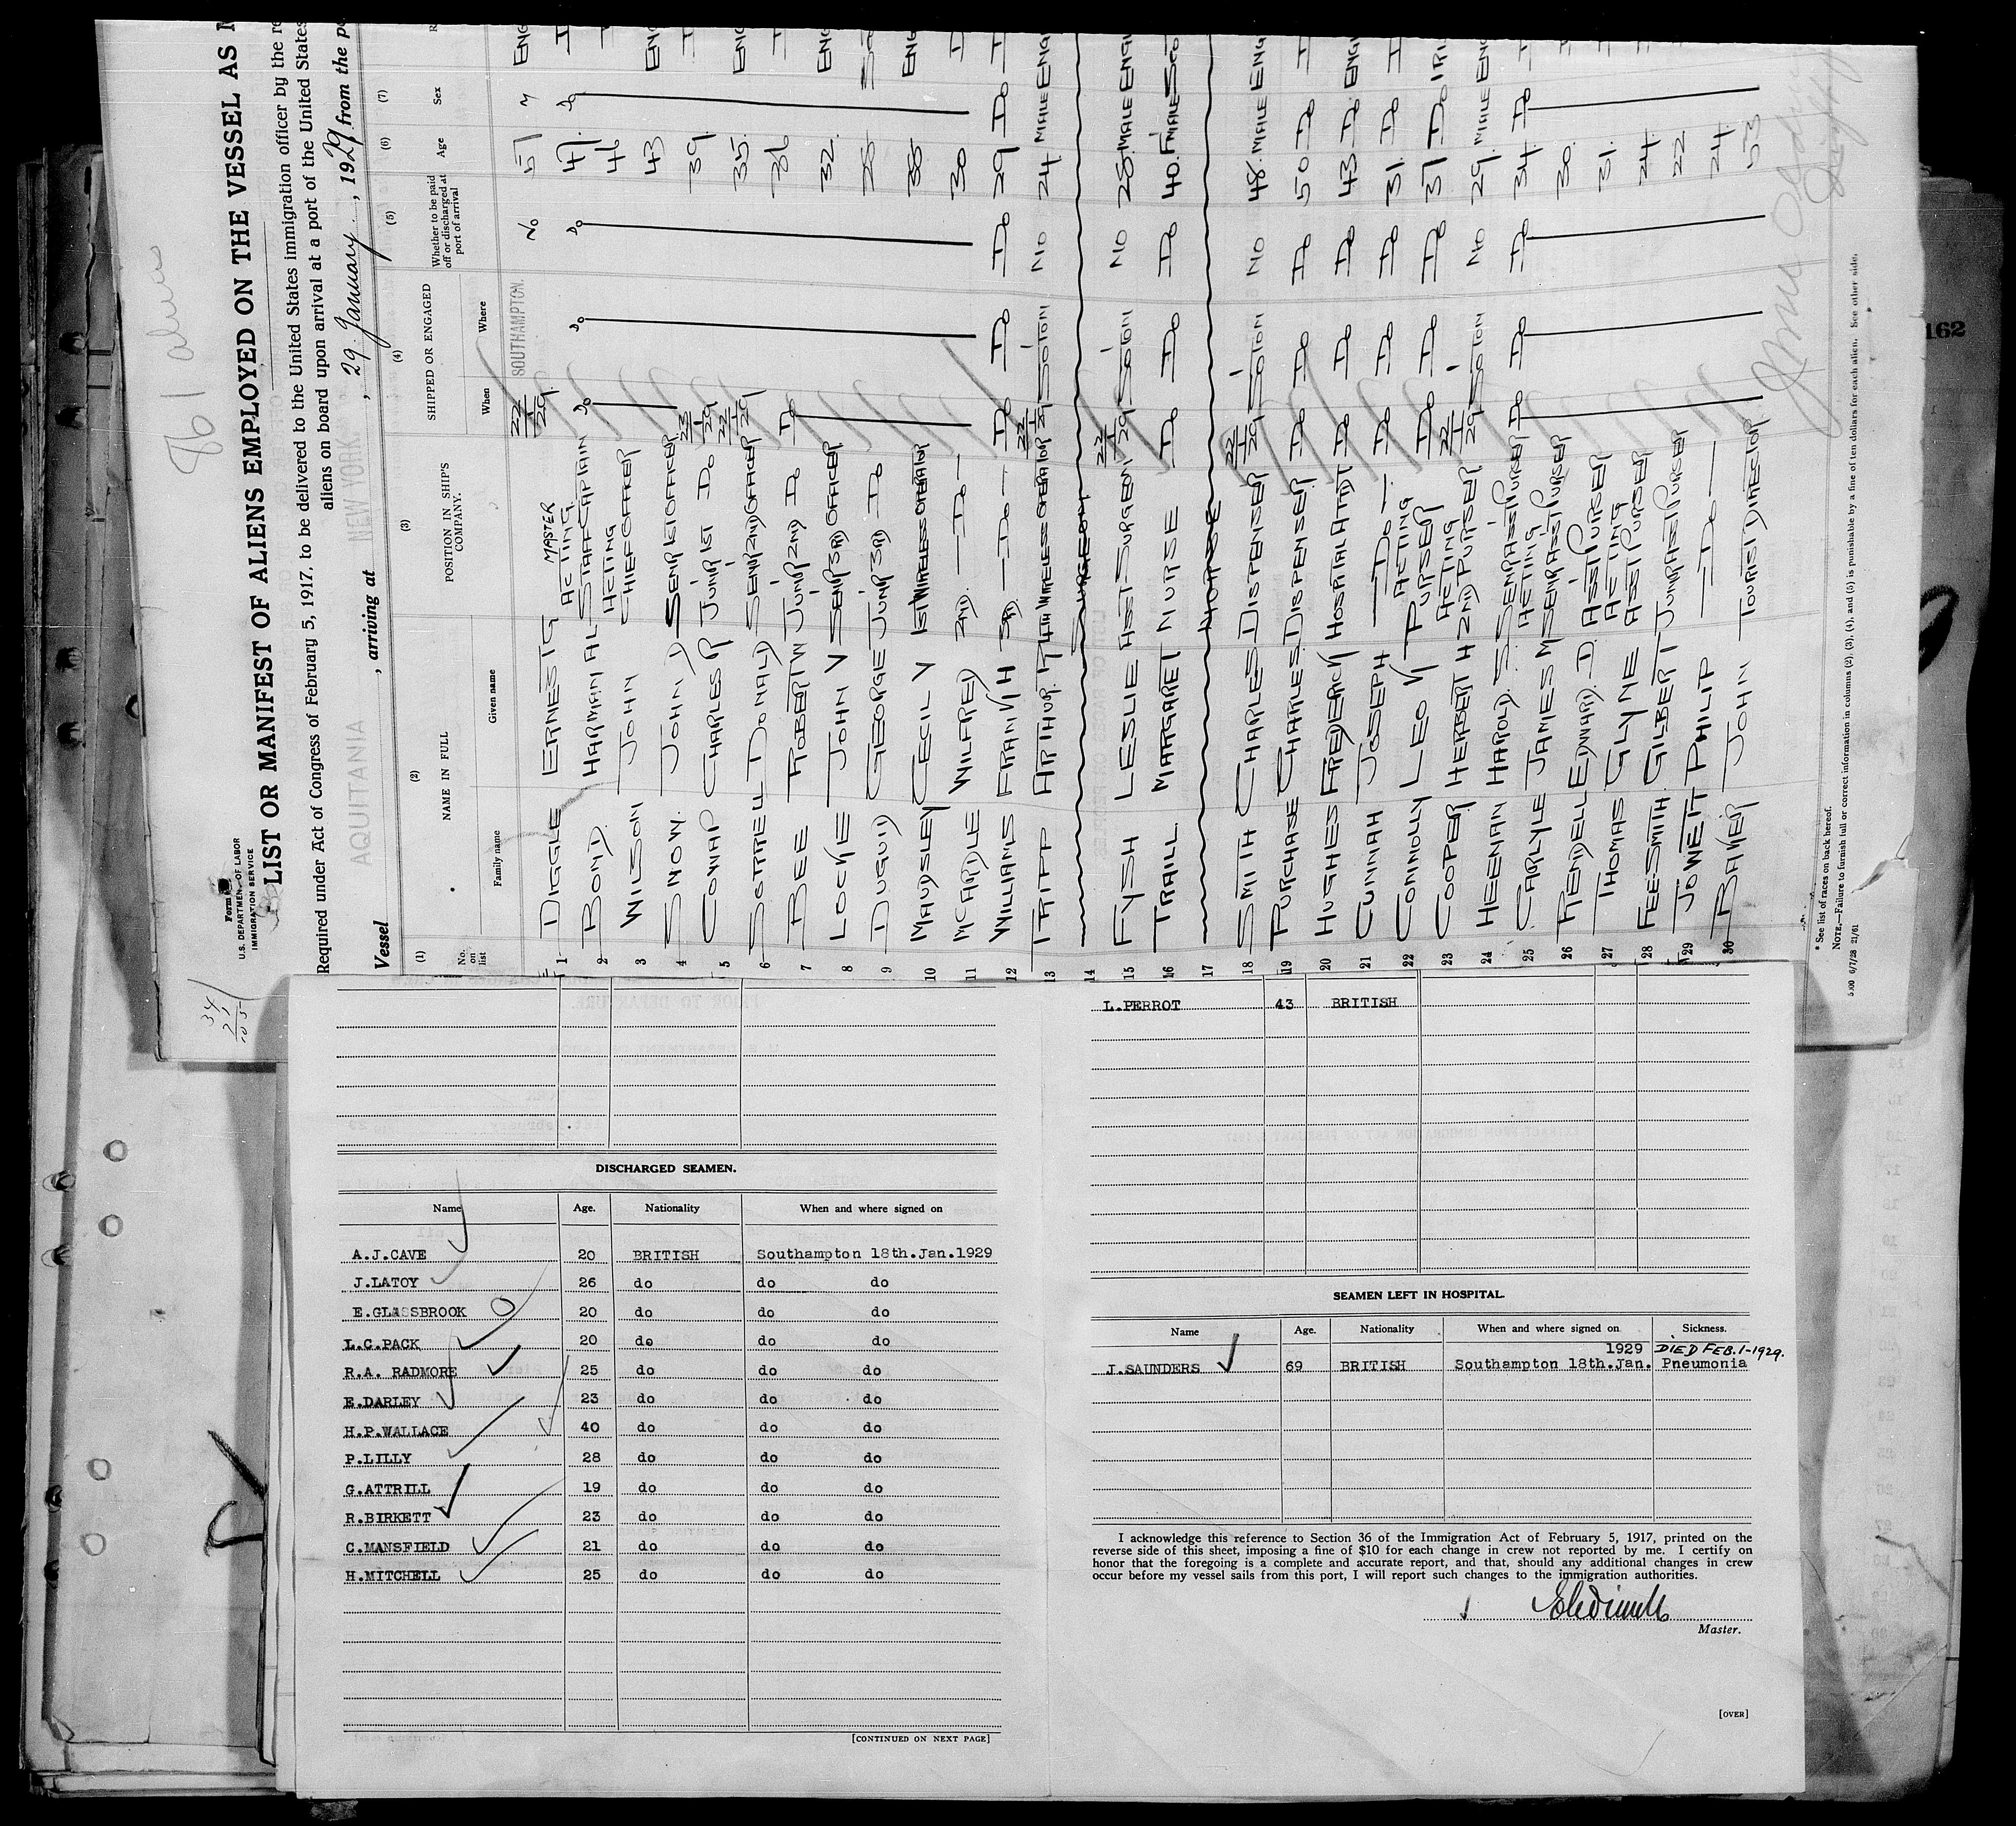 861 aliens
Form
U.S. DEPARTMENT OF LABOR
IMMIGRATION SERVICE
LIST OR MANIFEST OF ALIENS EMPLOYED ON THE VESSEL AS
Required under Act of Congress of February 5, 1917, to be delivered to the United States immigration officer by the
aliens on board upon arrival at a port of the United States
Vessel AQUITANIA, arriving at NEW YORK, 29 January, 1929 from the
(1) (2) (3) (4) (5) (6) (7)
No. on list NAME IN FULL POSITION IN SHIP'S COMPANY. SHIPPED OR ENGAGED Whether to be paid off or discharged at port of arrival Age Sex
Family name Given name When Where
1 DIGGLE ERNEST G MASTER 22/1/29 SOUTHAMPTON. No 57 M ENG
2 BOND. HARMAN AL ACTING STAFF CAPTAIN Do Do Do 47. Do
3 WILSON JOHN ACTING CHIEF OFFICER 46
4 SNOW. JOHN D SENR 1ST OFFICER 43 ENG
5 CONAR CHARLES R JUNR 1ST DO 39.
6 SOTTRELL DONALD SENR 2ND OFFICER 22/1/29 35. ENG
7 BEE ROBERT W JUNR 2ND DO DO 36
8 LOCKE JOHN V SENR 3RD OFFICER 32. ENG
9 DUGUID GEORGE JUNR 3RD DO
10 MAUDSLEY CECIL V 1ST WIRELESS OPERATOR 38 ENG
11 MCARDLE WILFRED 2ND. —DO— 30
12 WILLIAMS FRANK H 3RD. —DO— DO DO DO 29 DO
13 TRITT ARTHUR. R 4TH WIRELESS OPERATOR 22/1/29 SOTON NO 24 MALE ENG
14 SURGEON
15 FYSH LESLIE ASST SURGEON 22/1/29 SOTON NO 28. MALE ENG
16 TRAILL MARGARET NURSE DO DO DO 40. FMALE SCOT
17 NURSE
18 SMITH CHARLES DISPENSER 22/1/29 SOTON NO 48. MALE ENG
19 PURCHASE CHARLES. DISPENSER DO DO DO 50 DO
20 HUGHES FREDERICK HOSPITAL ATTDT DO DO DO 43 DO ENG
21 CUNNAH JOSEPH —DO— DO DO DO 31. DO
22 CONNOLLY LEO K ACTING PURSER DO DO DO 37 DO IRI
23 COOPER HERBERT H ACTING 2ND PURSER 22/1/29 SOTON NO 29. MALE ENG
24 HEENAN HAROLD. S SENR ASST PURSER DO DO DO 34. DO
25 CARLYLE JAMES M ACTING SENR ASST PURSER 30.
26 RENDELL EDWARD. D. ASST PURSER 31.
27 THOMAS GLYNE ACTING ASST PURSER 24
28 FEE-SMITH. GILBERT JUNR ASST PURSER 22
29 JOWETT PHILIP —DO— 24.
30 BAKER JOHN TOURIST DIRECTOR 53
* See list of races on back hereof.
NOTE.—Failure to furnish full or correct information in columns (2), (3), (4), and (5) is punishable by a fine of ten dollars for each alien. See other side.
162
DISCHARGED SEAMEN.
Name Age. Nationality When and where signed on
A.J.CAVE 20 BRITISH Southampton 18th.Jan.1929
J.LATOY 26 do do do
E.GLASSBROOK 20 do do do
L.C.PACK 20 do do do
R.A. RADMORE 25 do do do
E.DARLEY 23 do do do
H.P.WALLACE 40 do do do
P.LILLY 28 do do do
G.ATTRILL 19 do do do
R.BIRKETT 23 do do do
C.MANSFIELD 21 do do do
H.MITCHELL 25 do do do
[CONTINUED ON NEXT PAGE]
L.PERROT 43 BRITISH
SEAMEN LEFT IN HOSPITAL.
Name Age. Nationality When and where signed on Sickness.
1929 DIED FEB.1-1929.
J.SAUNDERS 69 BRITISH Southampton 18th.Jan. Pneumonia
I acknowledge this reference to Section 36 of the Immigration Act of February 5, 1917, printed on the
reverse side of this sheet, imposing a fine of $10 for each change in crew not reported by me. I certify on
honor that the foregoing is a complete and accurate report, and that, should any additional changes in crew
occur before my vessel sails from this port, I will report such changes to the immigration authorities.
Master.
[OVER]